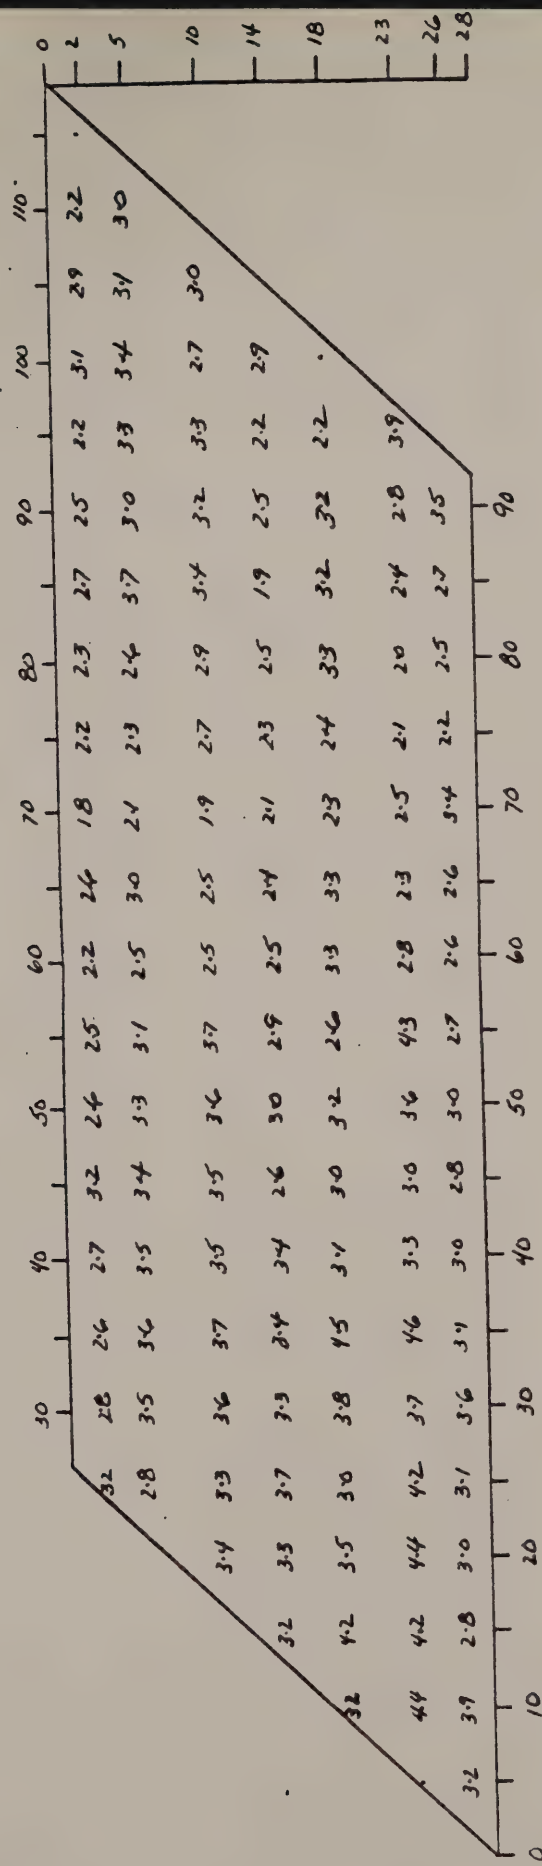 30 40 50 60 70 80 90 100 110 0
3.2 2.8 2.6 2.7 3.2 2.6 2.5 2.2 2.6 1.8 2.2 2.3 2.7 2.5 3.2 3.1 2.9 2.2 2
2.8 3.5 3.6 3.5 3.4 3.3 3.1 2.5 3.0 2.1 2.3 2.6 3.7 3.0 3.3 3.4 3.1 3.0 5
3.4 3.3 3.6 3.7 3.5 3.5 3.6 3.7 2.5 2.5 1.9 2.7 2.9 3.4 3.2 3.3 2.7 3.0 10
3.2 3.3 3.7 3.3 3.4 3.4 2.6 3.0 2.9 2.5 2.4 2.1 2.3 2.5 1.9 2.5 2.2 2.9 14
3.2 4.2 3.5 3.0 3.8 4.5 3.1 3.0 3.2 2.6 3.3 3.3 2.3 2.4 3.3 3.2 3.2 2.2 18
4.4 4.2 4.4 4.2 3.7 4.6 3.3 3.0 3.6 4.3 2.8 2.3 2.5 2.1 2.0 2.4 2.8 3.9 23
3.2 3.9 2.8 3.0 3.1 3.6 3.1 3.0 2.8 3.0 2.7 2.6 2.6 3.4 2.2 2.5 2.7 3.5 26
28
0 10 20 30 40 50 60 70 80 90